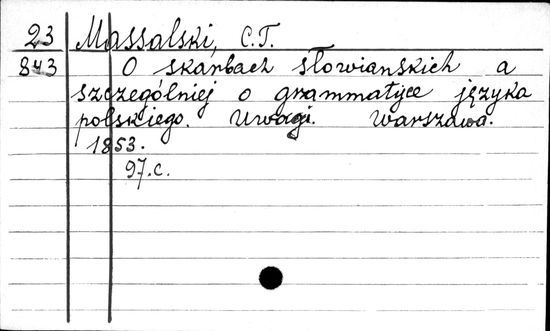 23 Massalski, C.T.
843 O skarbach słowianskich a
szczególniej o grammatyce języka
polskiego. Uwagi. Warszawa.
1853.
97.c.